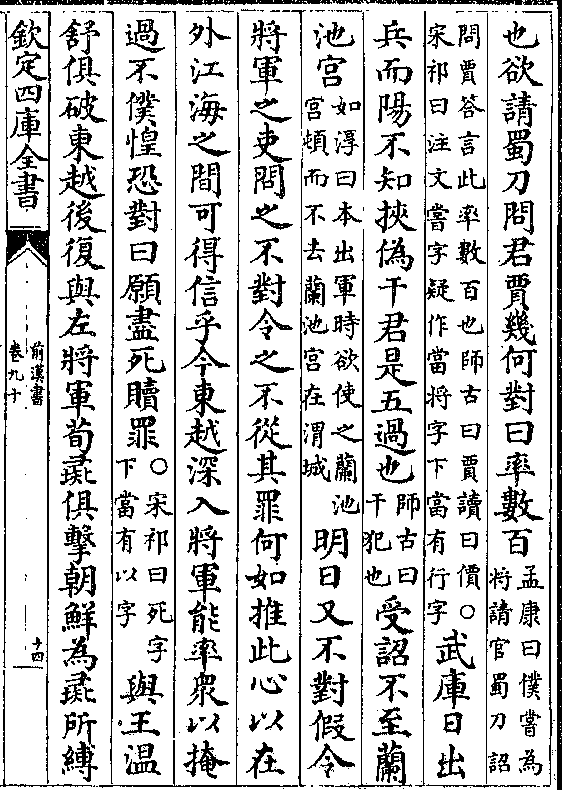 也欲請蜀刀問君賈幾何對曰率數百孟康曰僕嘗為
將請官蜀刀詔
問賈答言此率數百也師古曰賈讀曰價○
宋祁曰注文嘗字疑作當將字下當有行字武庫日出
兵而陽不知挾偽干君是五過也師古曰
干犯也受詔不至蘭
池宮如淳曰本出軍時欲使之蘭池
宮頓而不去蘭池宮在渭城明日又不對假令
將軍之吏問之不對令之不從其罪何如推此心以在
外江海之間可得信乎今東越深入將軍能率衆以掩
過不僕惶恐對曰願盡死贖罪○宋祁曰死字
下當有以字與王溫
舒俱破東越後復與左將軍荀彘俱擊朝鮮為彘所縛
欽定四庫全書
前漢書
卷九十
十四